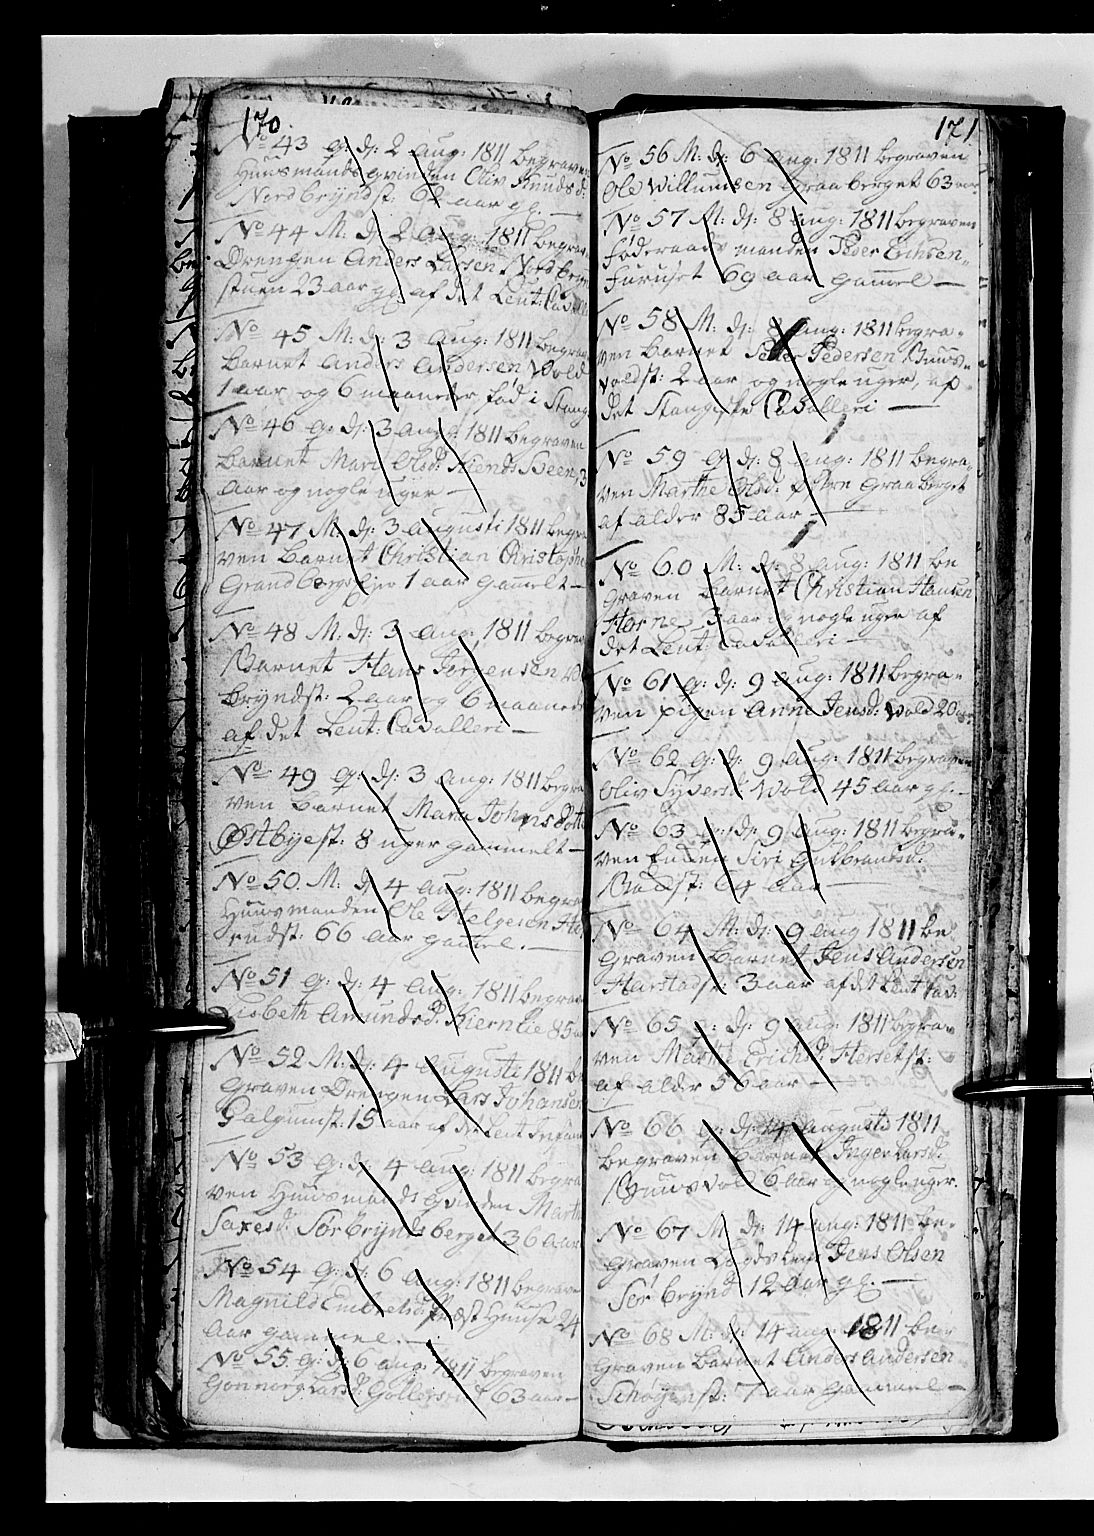 170.
No 43 q: d: 2 aug: 1811 begraven
Huusmands qvinden Oliv Knudsd:
Nordbryndst: 62 aar gl. —
No 44 M: d: 2 aug: 1811 begrav
Drengen Anders Larsen Nordbryn
stuen 23 aar gl. af det Leut: Cavall
No 45 M: d: 3 aug: 1811 begrav
Barnet Anders Andersen Wold
1 aar og 6 maaneder fød i Stang
No 46 q: d: 3 aug: 1811 begraven
Barnet Mari Olsd: 3
aar og nogle uger —
No 47 M: d: 3 augusti 1811 begra
ven Barnet Christian Christophe
1 aar gammelt —
No 48 M: d: 3 aug: 1811 begra
Barnet Hans Jørgensen
Bryndst: 2 aar og 6 maaneder
af det Leut: Cavalleri —
No 49 q: d: 3 aug: 1811 begra
ven Barnet Mari Johnsdotter
Østbyest: 8 uger gammelt —
No 50. M: d: 4 aug: 1811 begrav
Huusmanden Ole Helgesen
rudst: 66 aar gammel. —
No 51 q: d: 4 aug: 1811 begrav
Lisbeth Amundsd: Kiernlie 85
No 52 M: d: 4 augusti 1811 be
graven Drengen Lars Johansen
Galgumst: 15 aar af det Leut Infant
No 53 q: d: 4 aug: 1811 begra
ven Huusmands qvinden Marthe
Saxesd: Sørbryndsberget 36 aar
No 54 q: d: 6 aug: 1811 begrave
Magnild Embretsd: 24
aar gammel. —
No 55. q: d: 6 aug: 1811 begraven
Gonnorg Larsd: 63 aar —
171
No 56 M: d: 6 aug: 1811 begraven
Ole Willumsen Graaberget 63 aar
No 57 M: d: 8 aug: 1811 begraven
føderaads manden Peder Erichsen
Furuset 69 aar gammel —
No 58 M: d: 8 aug: 1811 begra-
ven Barnet Peder Pedersen Bruus-
voldst: 2 aar og nogle uger, af
det Stangeske Cavalleri —
No 59 q: d: 8 aug: 1811 begra
ven Marthe Olsd: Øfre Graaberget
af alder 85 aar —
No 60 M: d: 8 aug: 1811 be
graven Barnet Christian Hansen
Horne 3 aar og nogle uger af
det Leut: Cavalleri —
No 61 q: d: 9 aug: 1811 begra-
ven pigen Anne Jensd: Wold 20 aar
No 62 q: d: 9 aug: 1811 begraven
Oliv Syversd: Wold 45 aar gl. —
No 63 q: d: 9 aug: 1811 begra-
ven Enken Siri Gulbrandsd:
64 aar —
No 64 M: d: 9 aug 1811 be
graven Barnet Jens Andersen
Harstadst: 3 aar af det Leut Cav:
No 65 q: d: 9 aug: 1811 begra-
ven Marthe Erichsd: Hersetst:
af alder 56 aar —
No 66 q: d: 14 augusti 1811
begraven Barnet Inger Larsd:
Bruusvold 6 aar og nogle uger.
No 67 M: d: 14 aug: 1811 be-
graven Jens Olsen
Sør brynd 12 aar gl. —
No 68 M: d: 14 aug: 1811 be-
graven Barnet Anders Andersen
Schøyenst: 7 aar gammel —